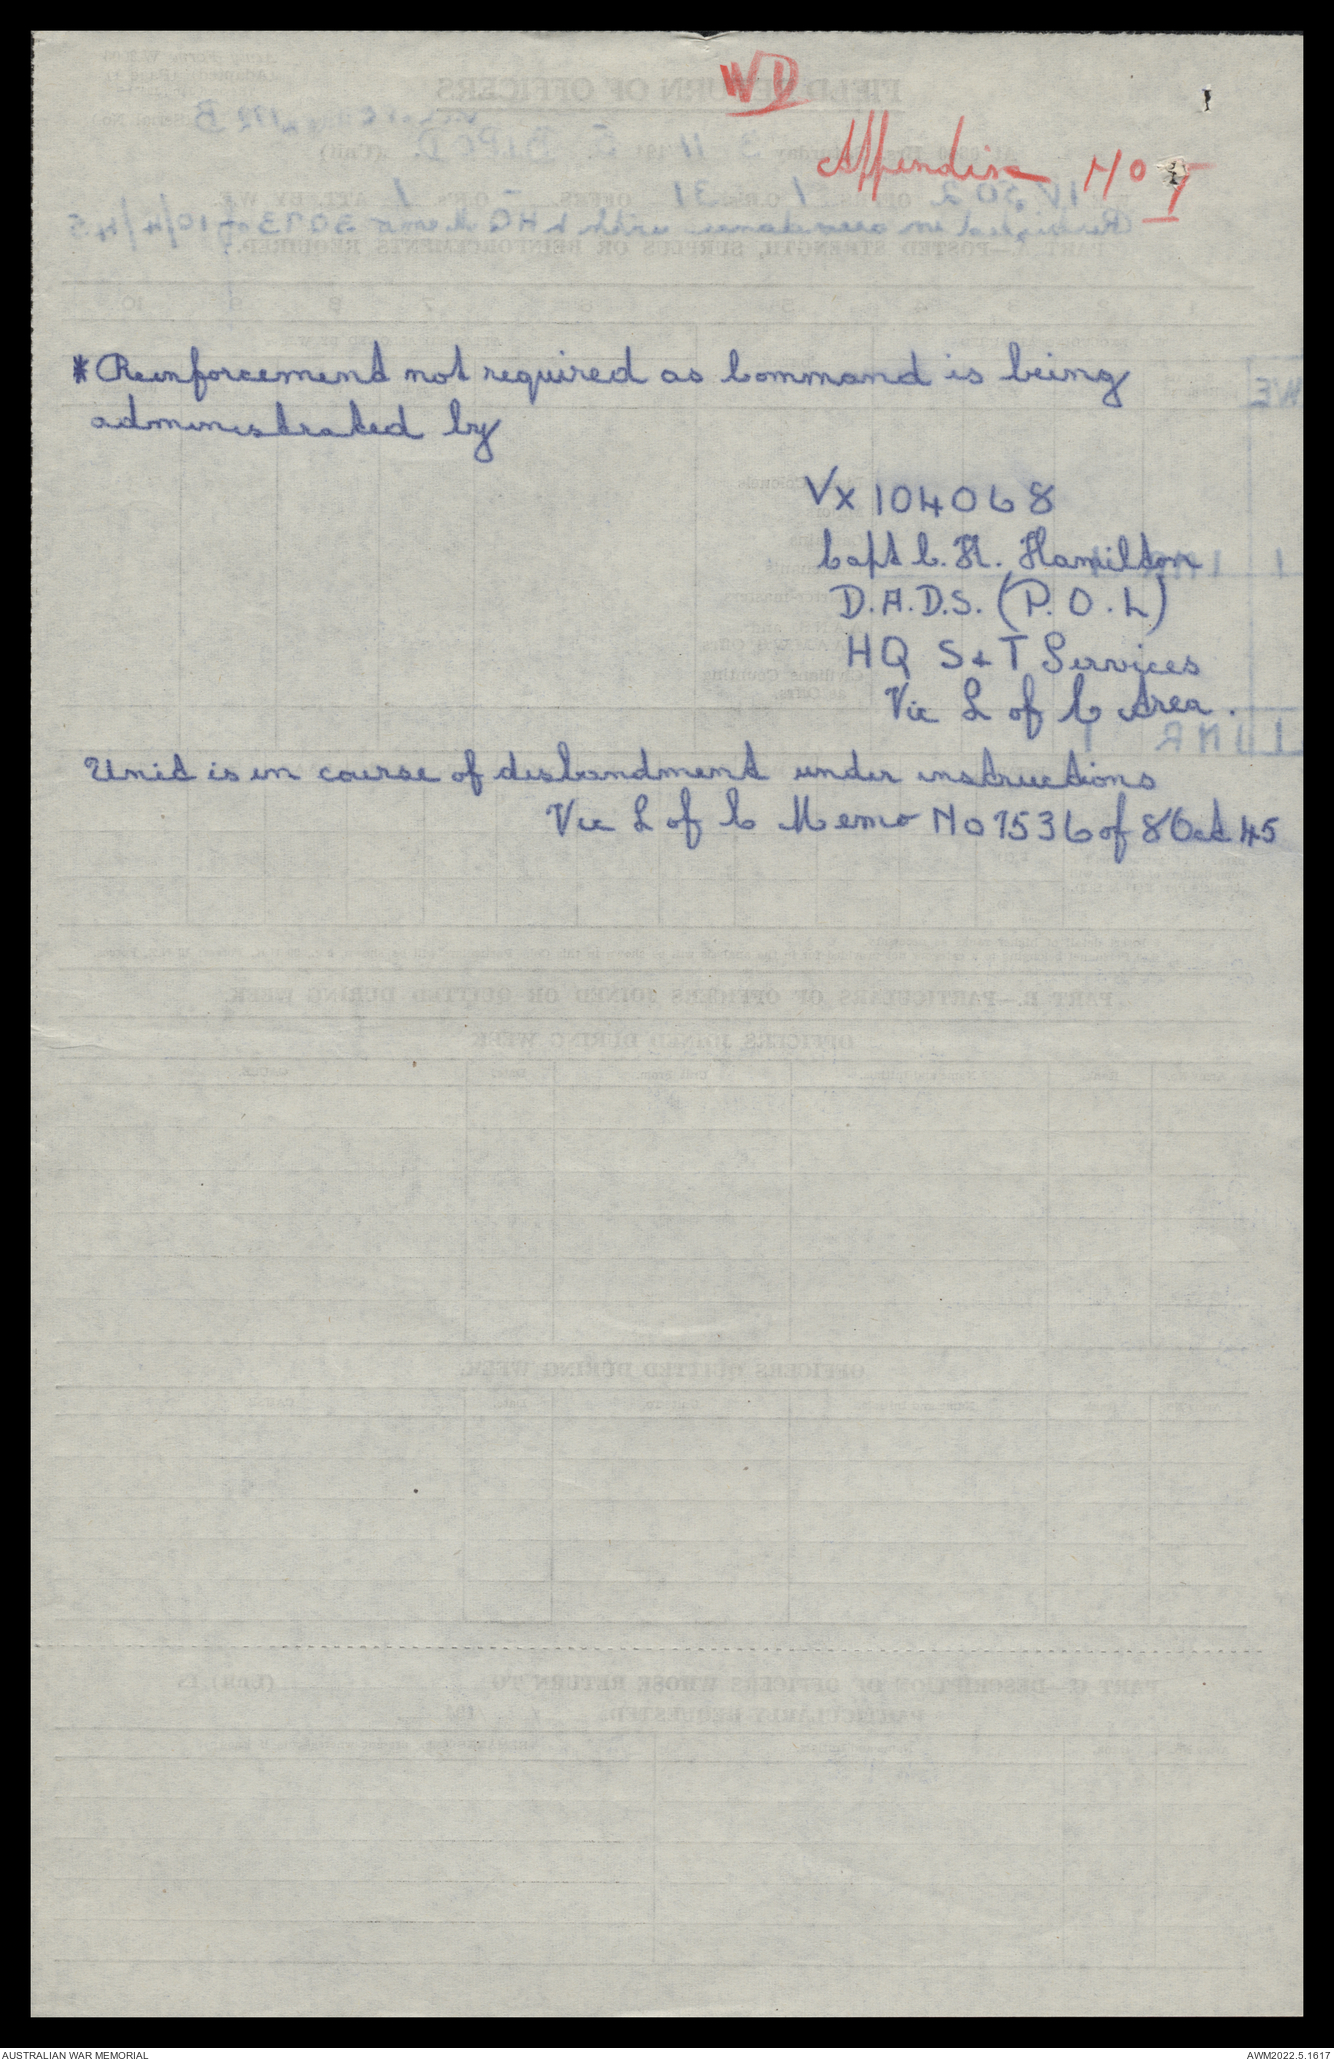 WD
Appendix No I
* Reinforcement not required as Command is being
administrated by
VX104068
Capt C. H. Hamilton
D.A.D.S. (P.O.L)
HQ S & T Services
Vic L of C Area.
Unit is in course of disbandment under instructions
Vic L of C Memo No 7536 of 8 Oct 45
AUSTRALIAN WAR MEMORIAL
AWM2022.5.1617